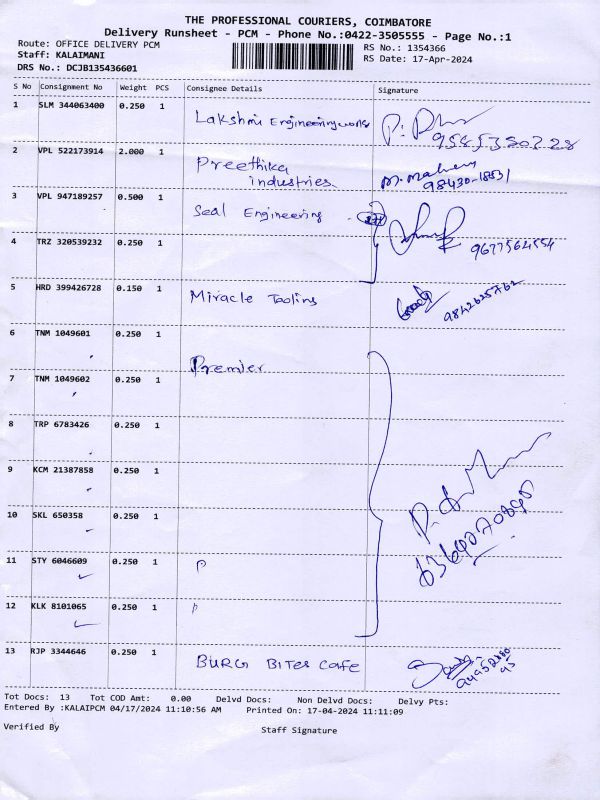 THE PROFESSIONAL COURIERS, COIMBATORE
Delivery Runsheet - PCM - Phone No.:0422-3505555 - Page No.:1
Route: OFFICE DELIVERY PCM
Staff: KALAIMANI
DRS No.: DCJB135436601
RS No.: 1354366
RS Date: 17-Apr-2024
S No Consignment No Weight PCS Consignee Details Signature
1 SLM 344063400 0.250 1 Lakshmi Engineering works
9585380228
2 VPL 522173914 2.000 1 Preethika industries M. Mahesh
98430-18531
3 VPL 947189257 0.500 1 Seal Engineering
4 TRZ 320539232 0.250 1 9677564554
5 HRD 399426728 0.150 1 Miracle Tooling 9842625762
6 TNM 1049601 0.250 1 Premier
7 TNM 1049602 0.250 1
8 TRP 6783426 0.250 1
9 KCM 21387858 0.250 1
10 SKL 650358 0.250 1
11 STY 6046609 0.250 1 P
12 KLK 8101065 0.250 1 P
13 RJP 3344646 0.250 1 BURG BITES CAFE
Tot Docs: 13 Tot COD Amt: 0.00 Delvd Docs: Non Delvd Docs: Delvy Pts:
Entered By :KALAIPCM 04/17/2024 11:10:56 AM Printed On: 17-04-2024 11:11:09
Verified By Staff Signature